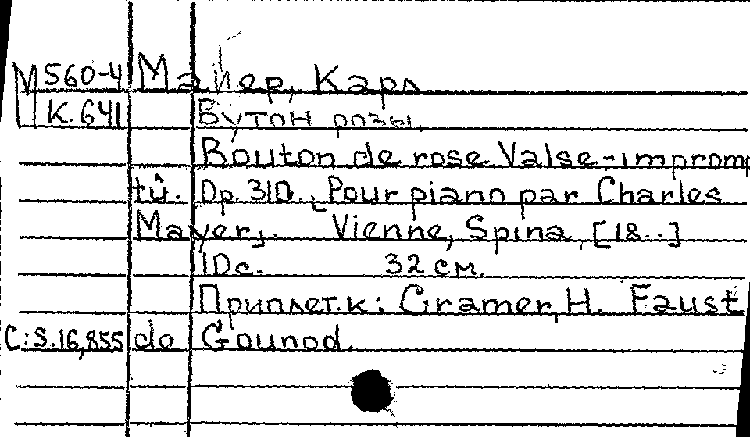 М560-4 Майер, Карл
К.641 Бутон розы.
Bouton de rose Valse-impromp
tû. Op. 310. Pour piano par Charles
Mayer. Vienne, Spina, [18..]
10с. 32 см.
Приплет. к: Cramer, H. Faust
С:S.16,855 do Gounod.